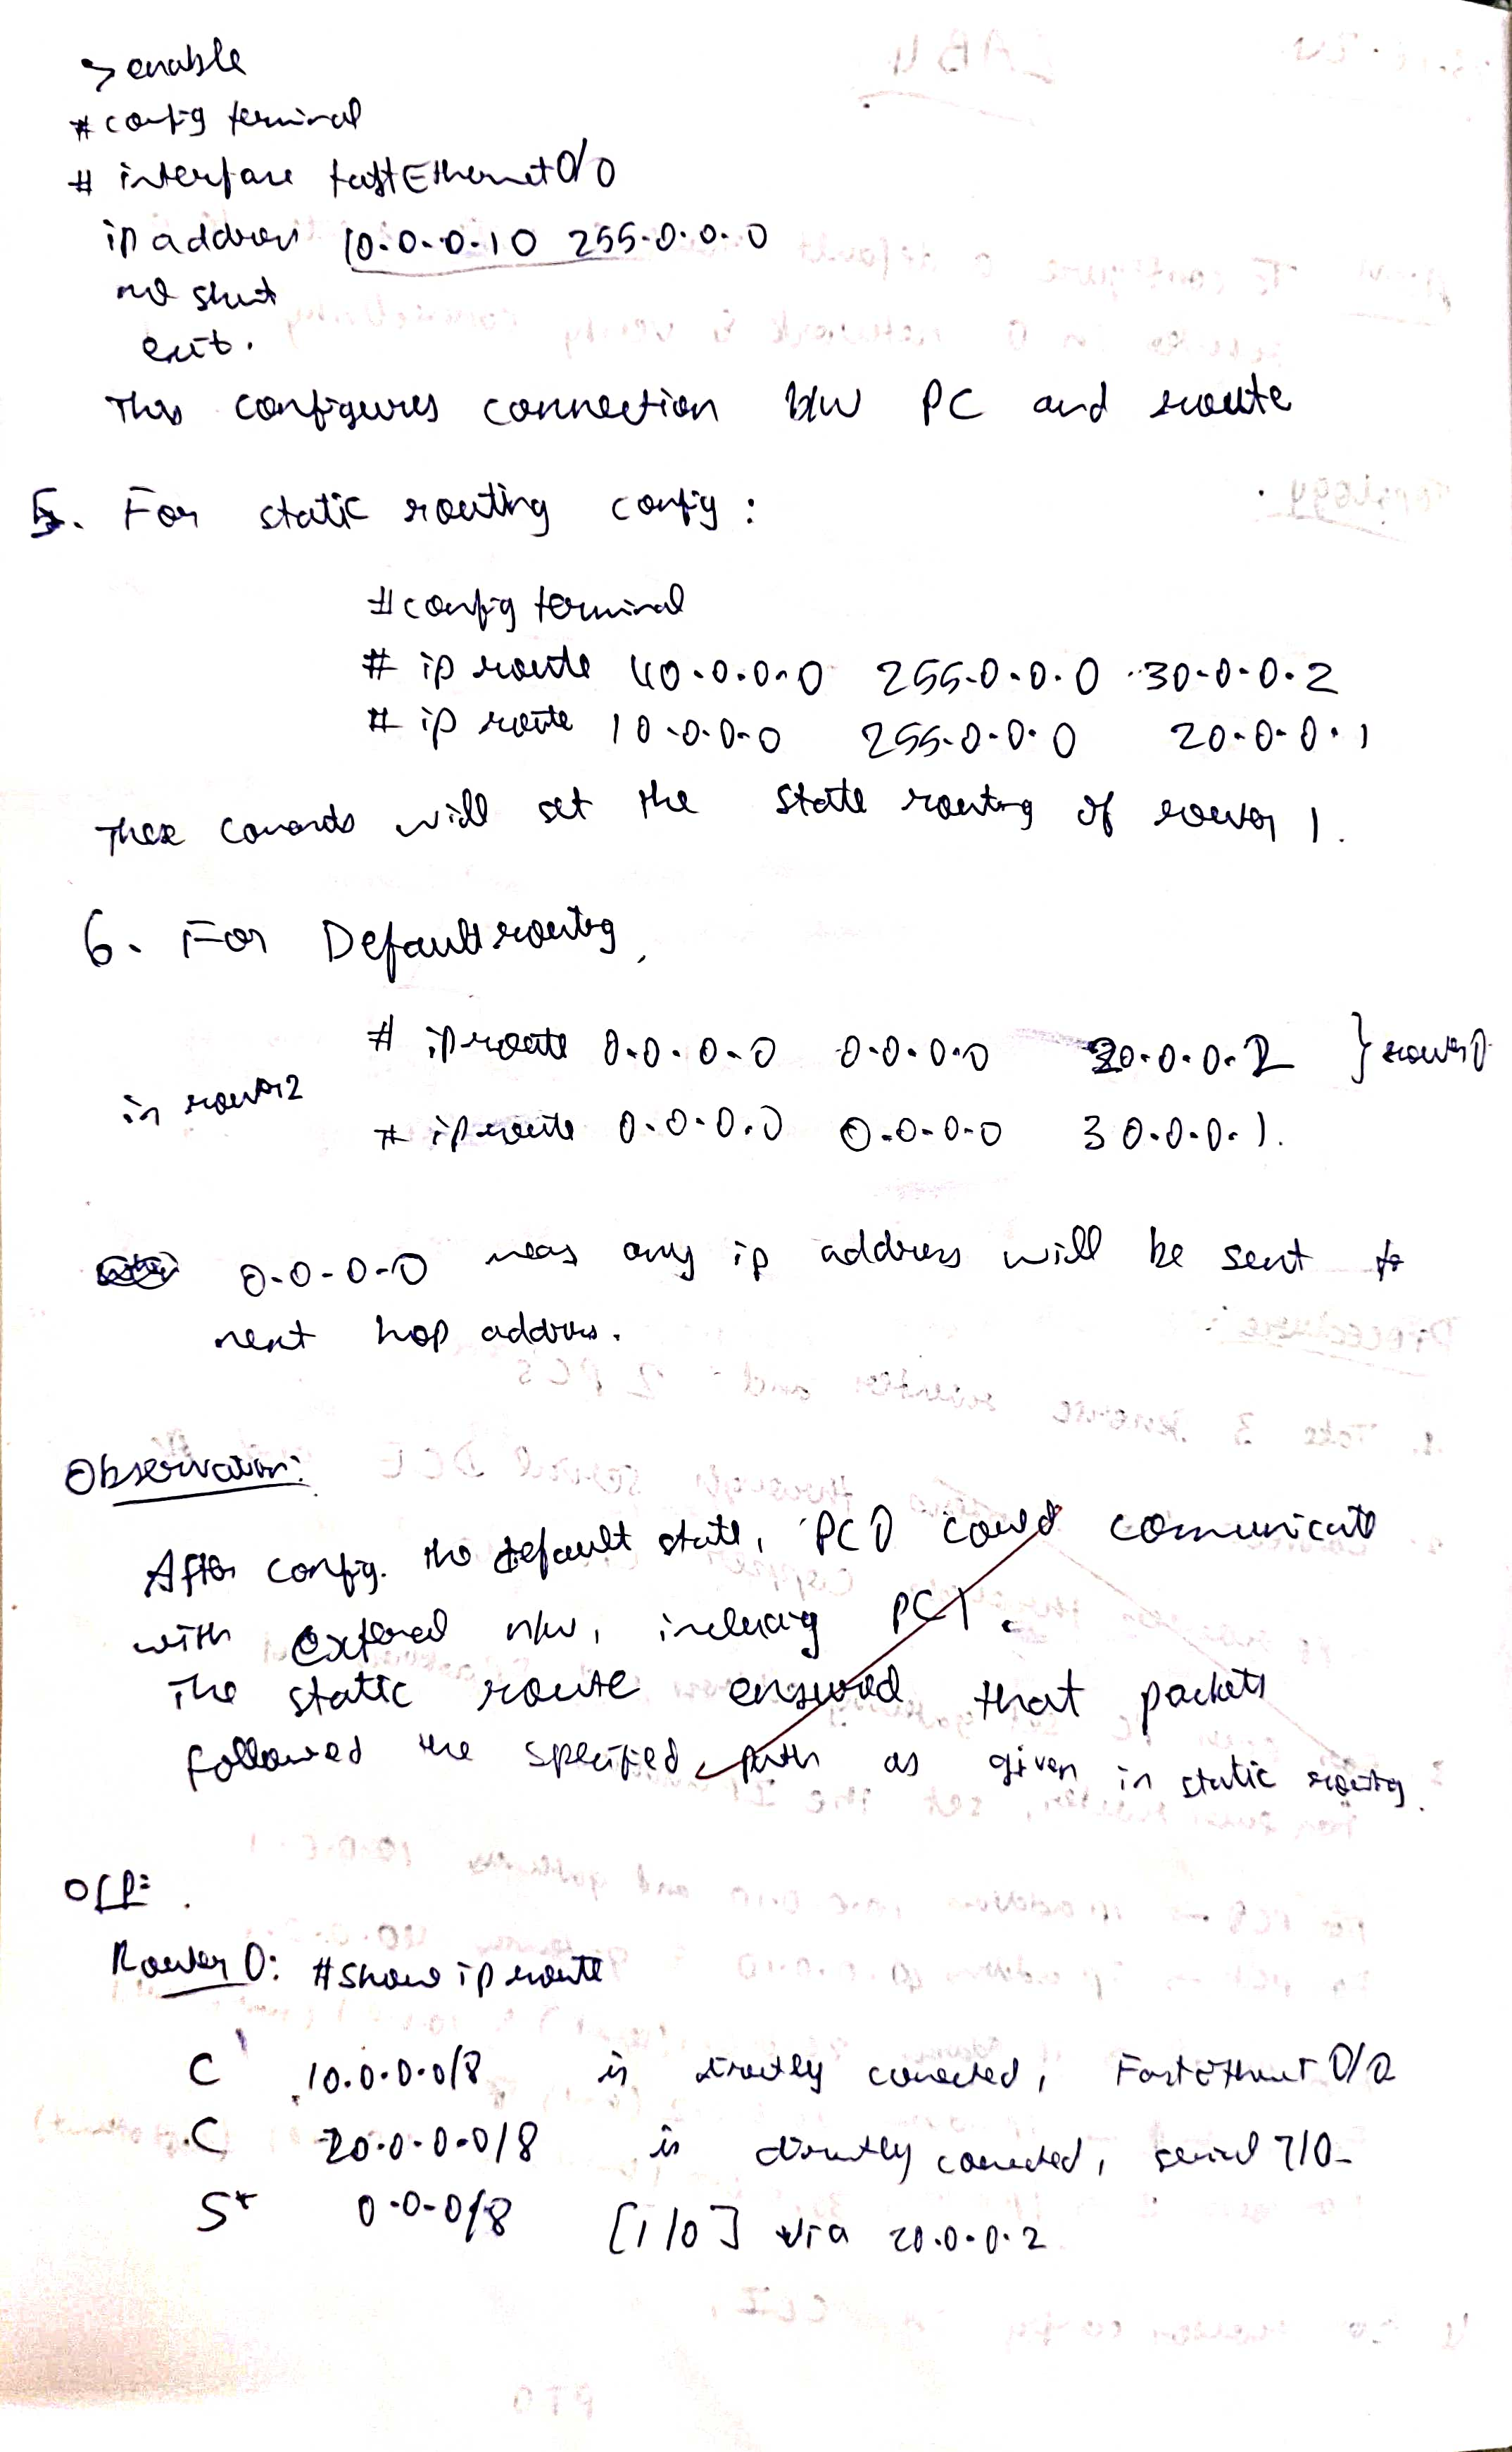 > enable
# config terminal
# interface fastEthernet 0/0
ip address 10.0.0.10 255.0.0.0
no shut
exit.
This configures connection b/w PC and route
5. For static routing config:
# config terminal
# ip route 40.0.0.0 255.0.0.0 30.0.0.2
# ip route 10.0.0.0 255.0.0.0 20.0.0.1
These comands will set the state routing of router 1.
6. For Default routing,
# ip route 0.0.0.0 0.0.0.0 20.0.0.2 } router 0
in router 2
# ip route 0.0.0.0 0.0.0.0 30.0.0.1.
0.0.0.0 meas any ip address will be sent to
next hop address.
Observation:
After config. the default state, PC0 could comunicate
with external n/w, including PC1.
The static route ensured that packets
followed the specified path as given in static routing.
O/P:
Router 0: # show ip route
C 10.0.0.0/8 is directly conected, FastEthernet 0/0
C 20.0.0.0/8 is directly conected, serial 7/0
S* 0.0.0/8 [1/0] via 20.0.0.2